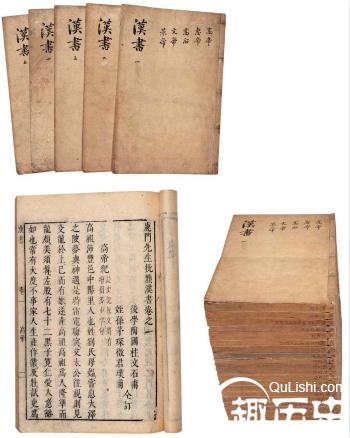 漢書
漢書
漢書
漢書
漢書 一
高帝
惠帝
高后
文帝
景帝
鹿門先生批點漢書卷之一
後學陶國柱文石甫
姪孫茅琛徵君璞甫 仝訂
高帝紀
高祖沛豐邑中陽里人也姓劉氏母媼嘗息大澤
之陂夢與神遇是時雷電晦冥父太公往視則見
交龍於上已而有娠遂產高祖高祖為人隆準而
龍顏美須髯左股有七十二黑子寬仁愛人意豁
如也常有大度不事家人生產作業及壯試吏為
漢書 卷一 高帝
漢書
高帝
惠帝
高后
文帝
景帝
QuLishi.com
趣历史